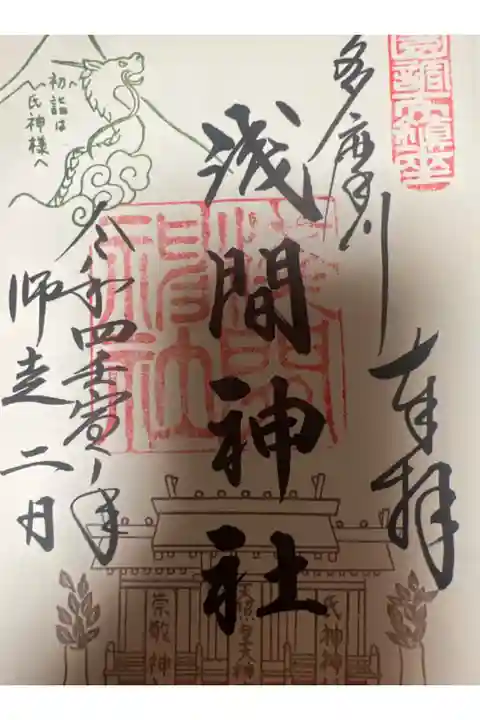 多摩川
奉拝
浅間神社
浅間神社
令和四壬寅年
師走二日
初詣は
氏神様へ
氏神神
天照皇大神
崇敬神